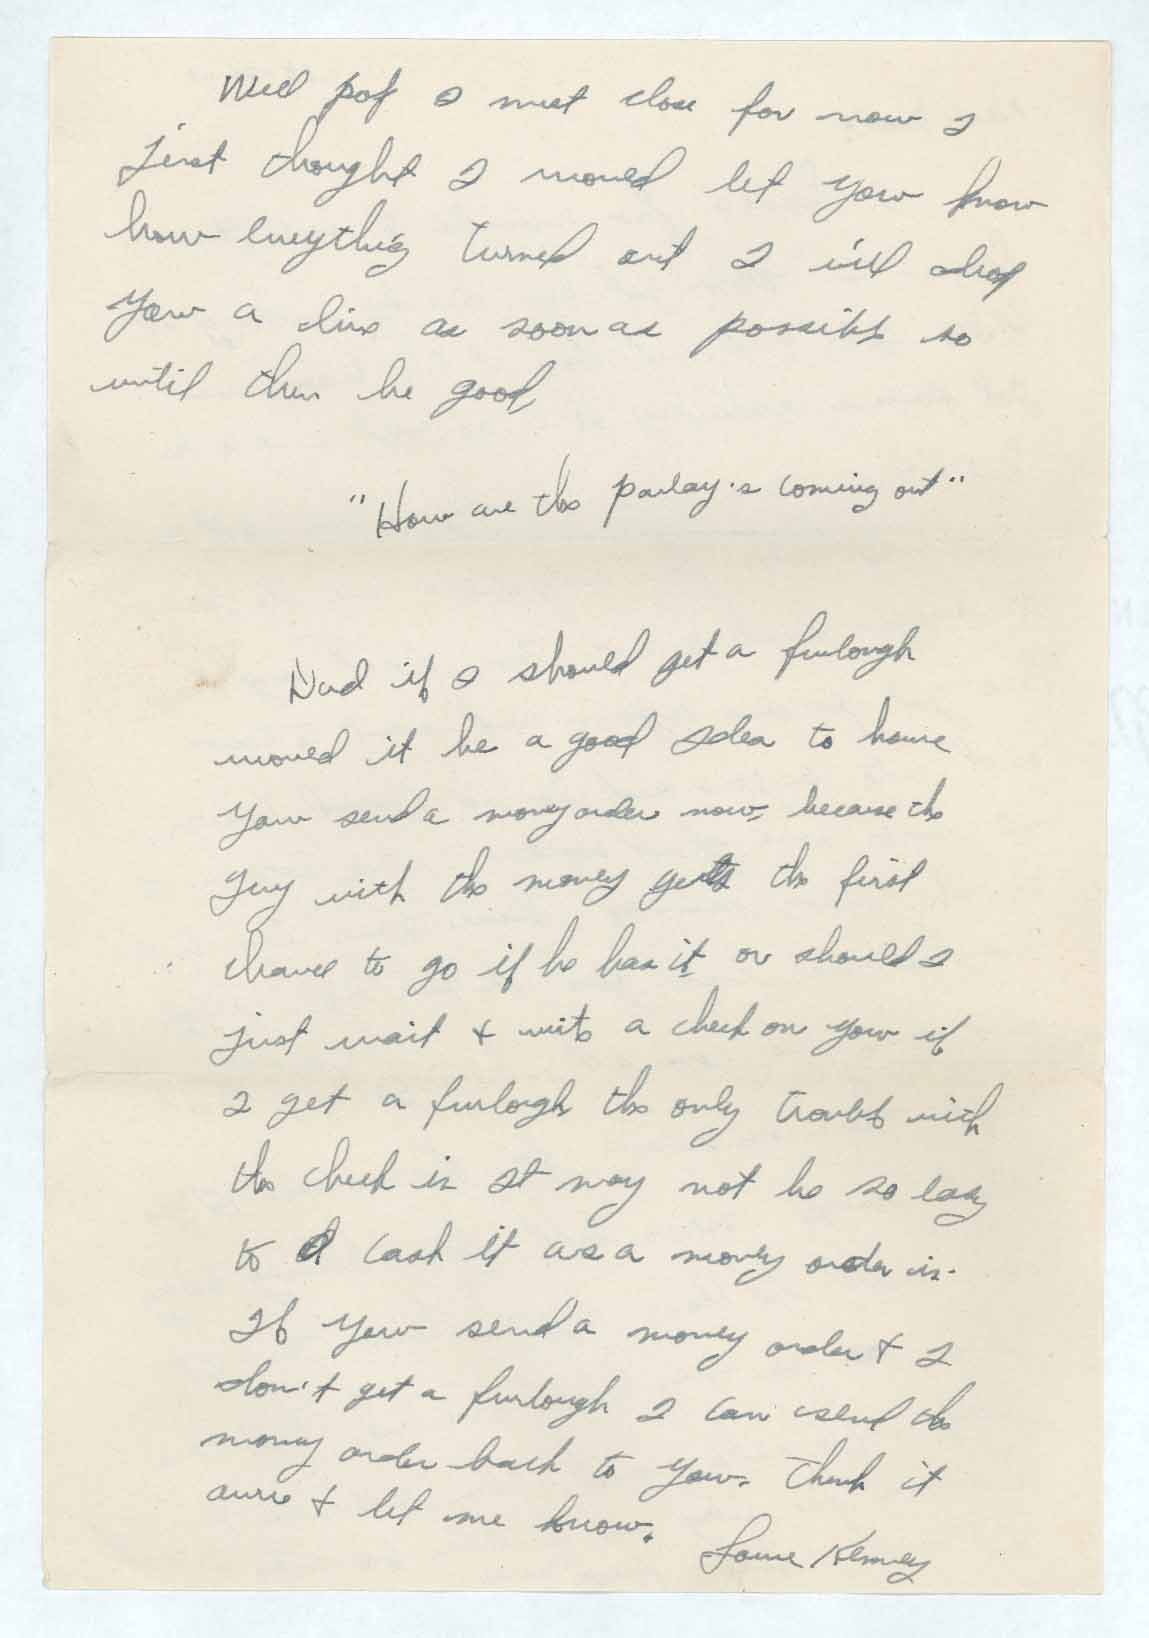 Well pop I must close for now I
just thought I would let you know
how everything turned out I will drop
you a line as soon as possible so
until then be good,
"How are the parlay's coming out"
Dad if I should get a furlough
would it be a good idea to have
you send a money order now, because the
guy with the money gets the first
chance to go if he has it or should I
just wait & write a check on you if
I get a furlough the only trouble with
the check is it may not be so easy
to cash it as a money order is.
If you send a money order & I
don't get a furlough I can send the
money order back to you. Think it
over & let me know.
Love Kenney